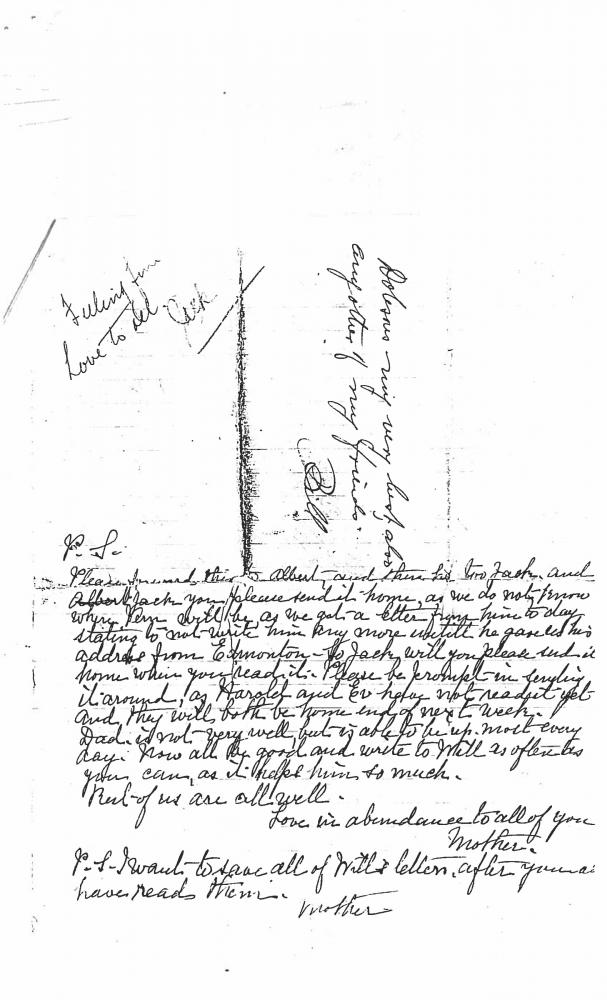 Feeling fine
Love to all.
Jack
Dobsons my very best, also
any other of my friends.
Bill
P. S.
Please forward this to Albert, and then his too Jack. and
Albert Jack you please send it home, as we do not know
where Vern will be as we got a letter from him to day
stating to not write him any more untill he gave us his
address from Edmonton - So Jack will you please send it
home when you read it. Please be prompt in sending
it around, as Harold and Ev have not read it yet
and they will both be home end of next week.
Dad is not very well, but is able to be up most every
day. Now all be good and write to Will as often as
you can, as it helps him so much.
Rest of us are all well.
Love in abundance to all of you
Mother.
P.S. I want to save all of Will's letters, after you
have reads them.
Mother